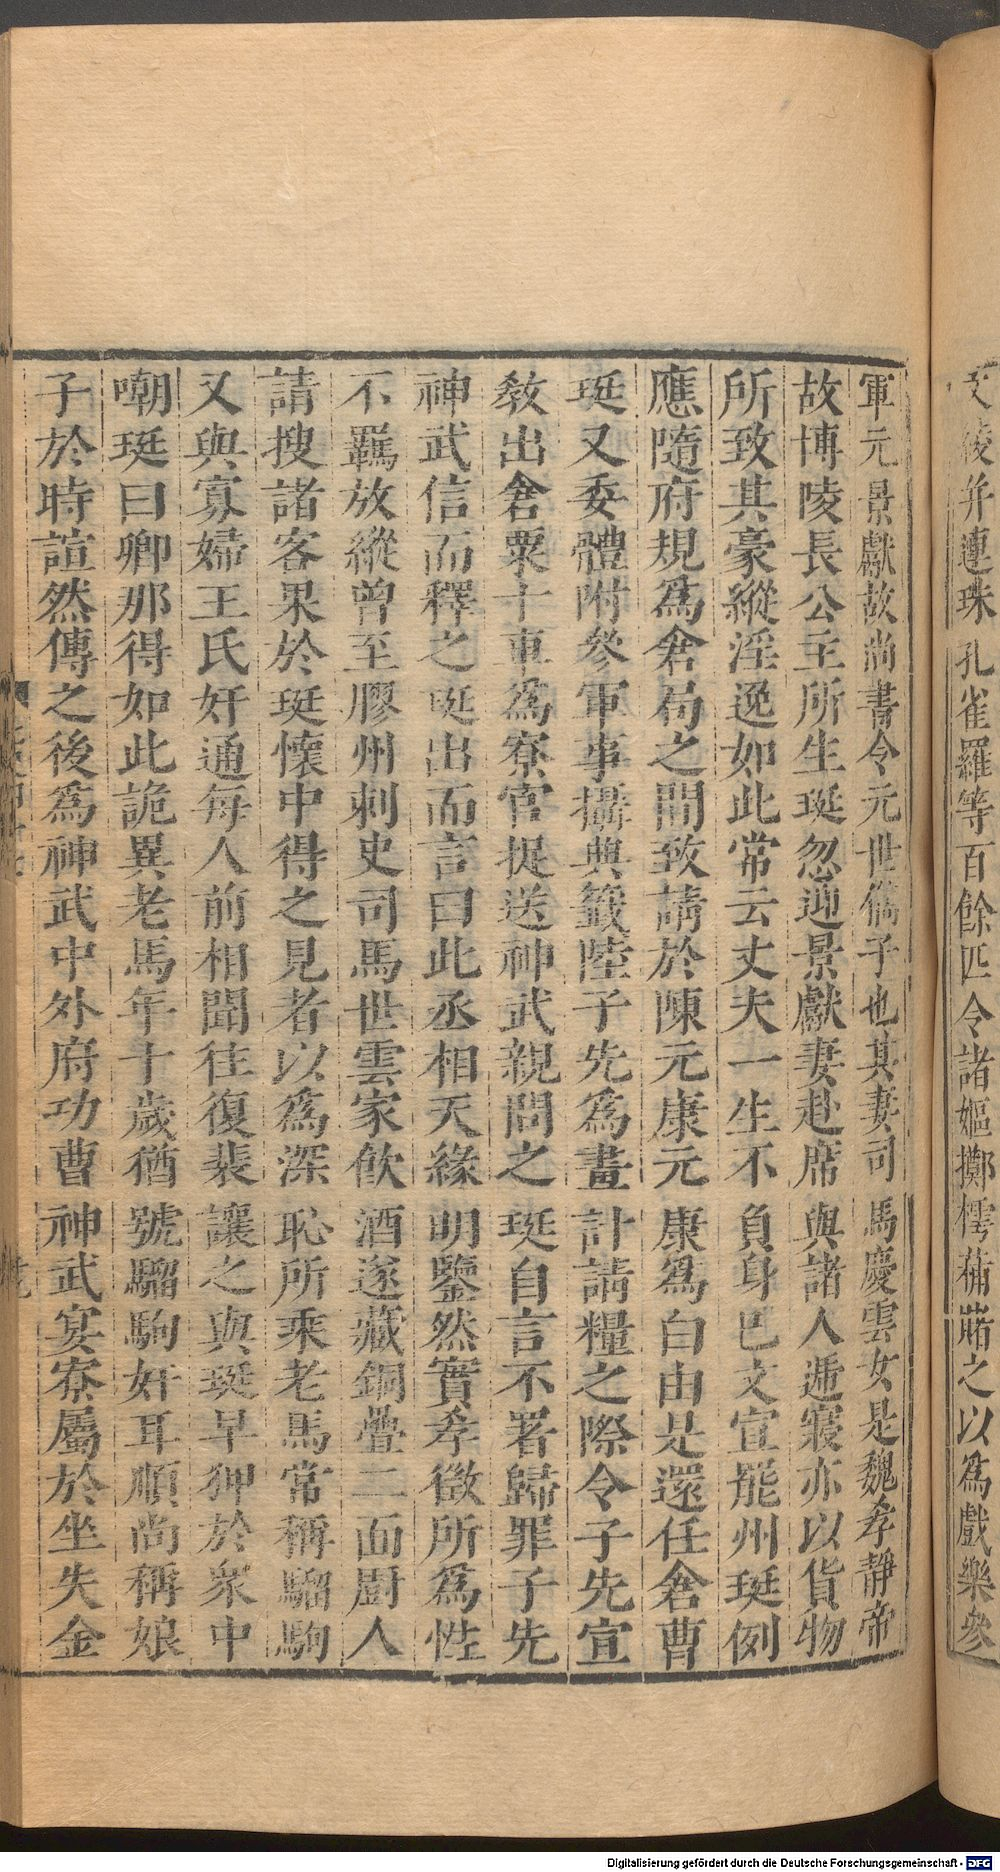 文綾并連珠孔雀羅等百餘匹令諸嫗擲樗蒱賭之以爲戲樂參
軍元景獻故尚書令元世儁子也其妻司馬慶雲女是魏孝靜帝
故博陵長公主所生珽忽迎景獻妻赴席與諸人遞寢亦以貨物
所致其豪縱淫逸如此常云丈夫一生不負身巴文宣罷州珽例
應隨府規爲倉局之間致請於陳元康元康爲白由是還任倉曹
珽又委體附參軍事攝典籤陸子先爲畫計請糧之際令子先宣
敎出倉粟十車爲寮官捉送神武親問之珽自言不署歸罪子先
神武信而釋之珽出而言曰此丞相天緣明鑒然實孝徵所爲性
不羈放縱曾至膠州刺史司馬世雲家飮酒遂藏銅疊二面廚人
請搜諸客果於珽懷中得之見者以爲深恥所乘老馬常稱騮駒
又與寡婦王氏奸通每人前相聞往復裴讓之與珽早狎於衆中
嘲珽曰卿那得如此詭異老馬年十歲猶號騮駒奸耳順尚稱娘
子於時諠然傳之後爲神武中外府功曹神武宴寮屬於坐失金
Digitalisierung gefördert durch die Deutsche Forschungsgemeinschaft - DFG